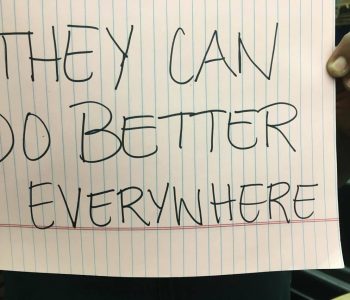 THEY CAN
DO BETTER
EVERYWHERE